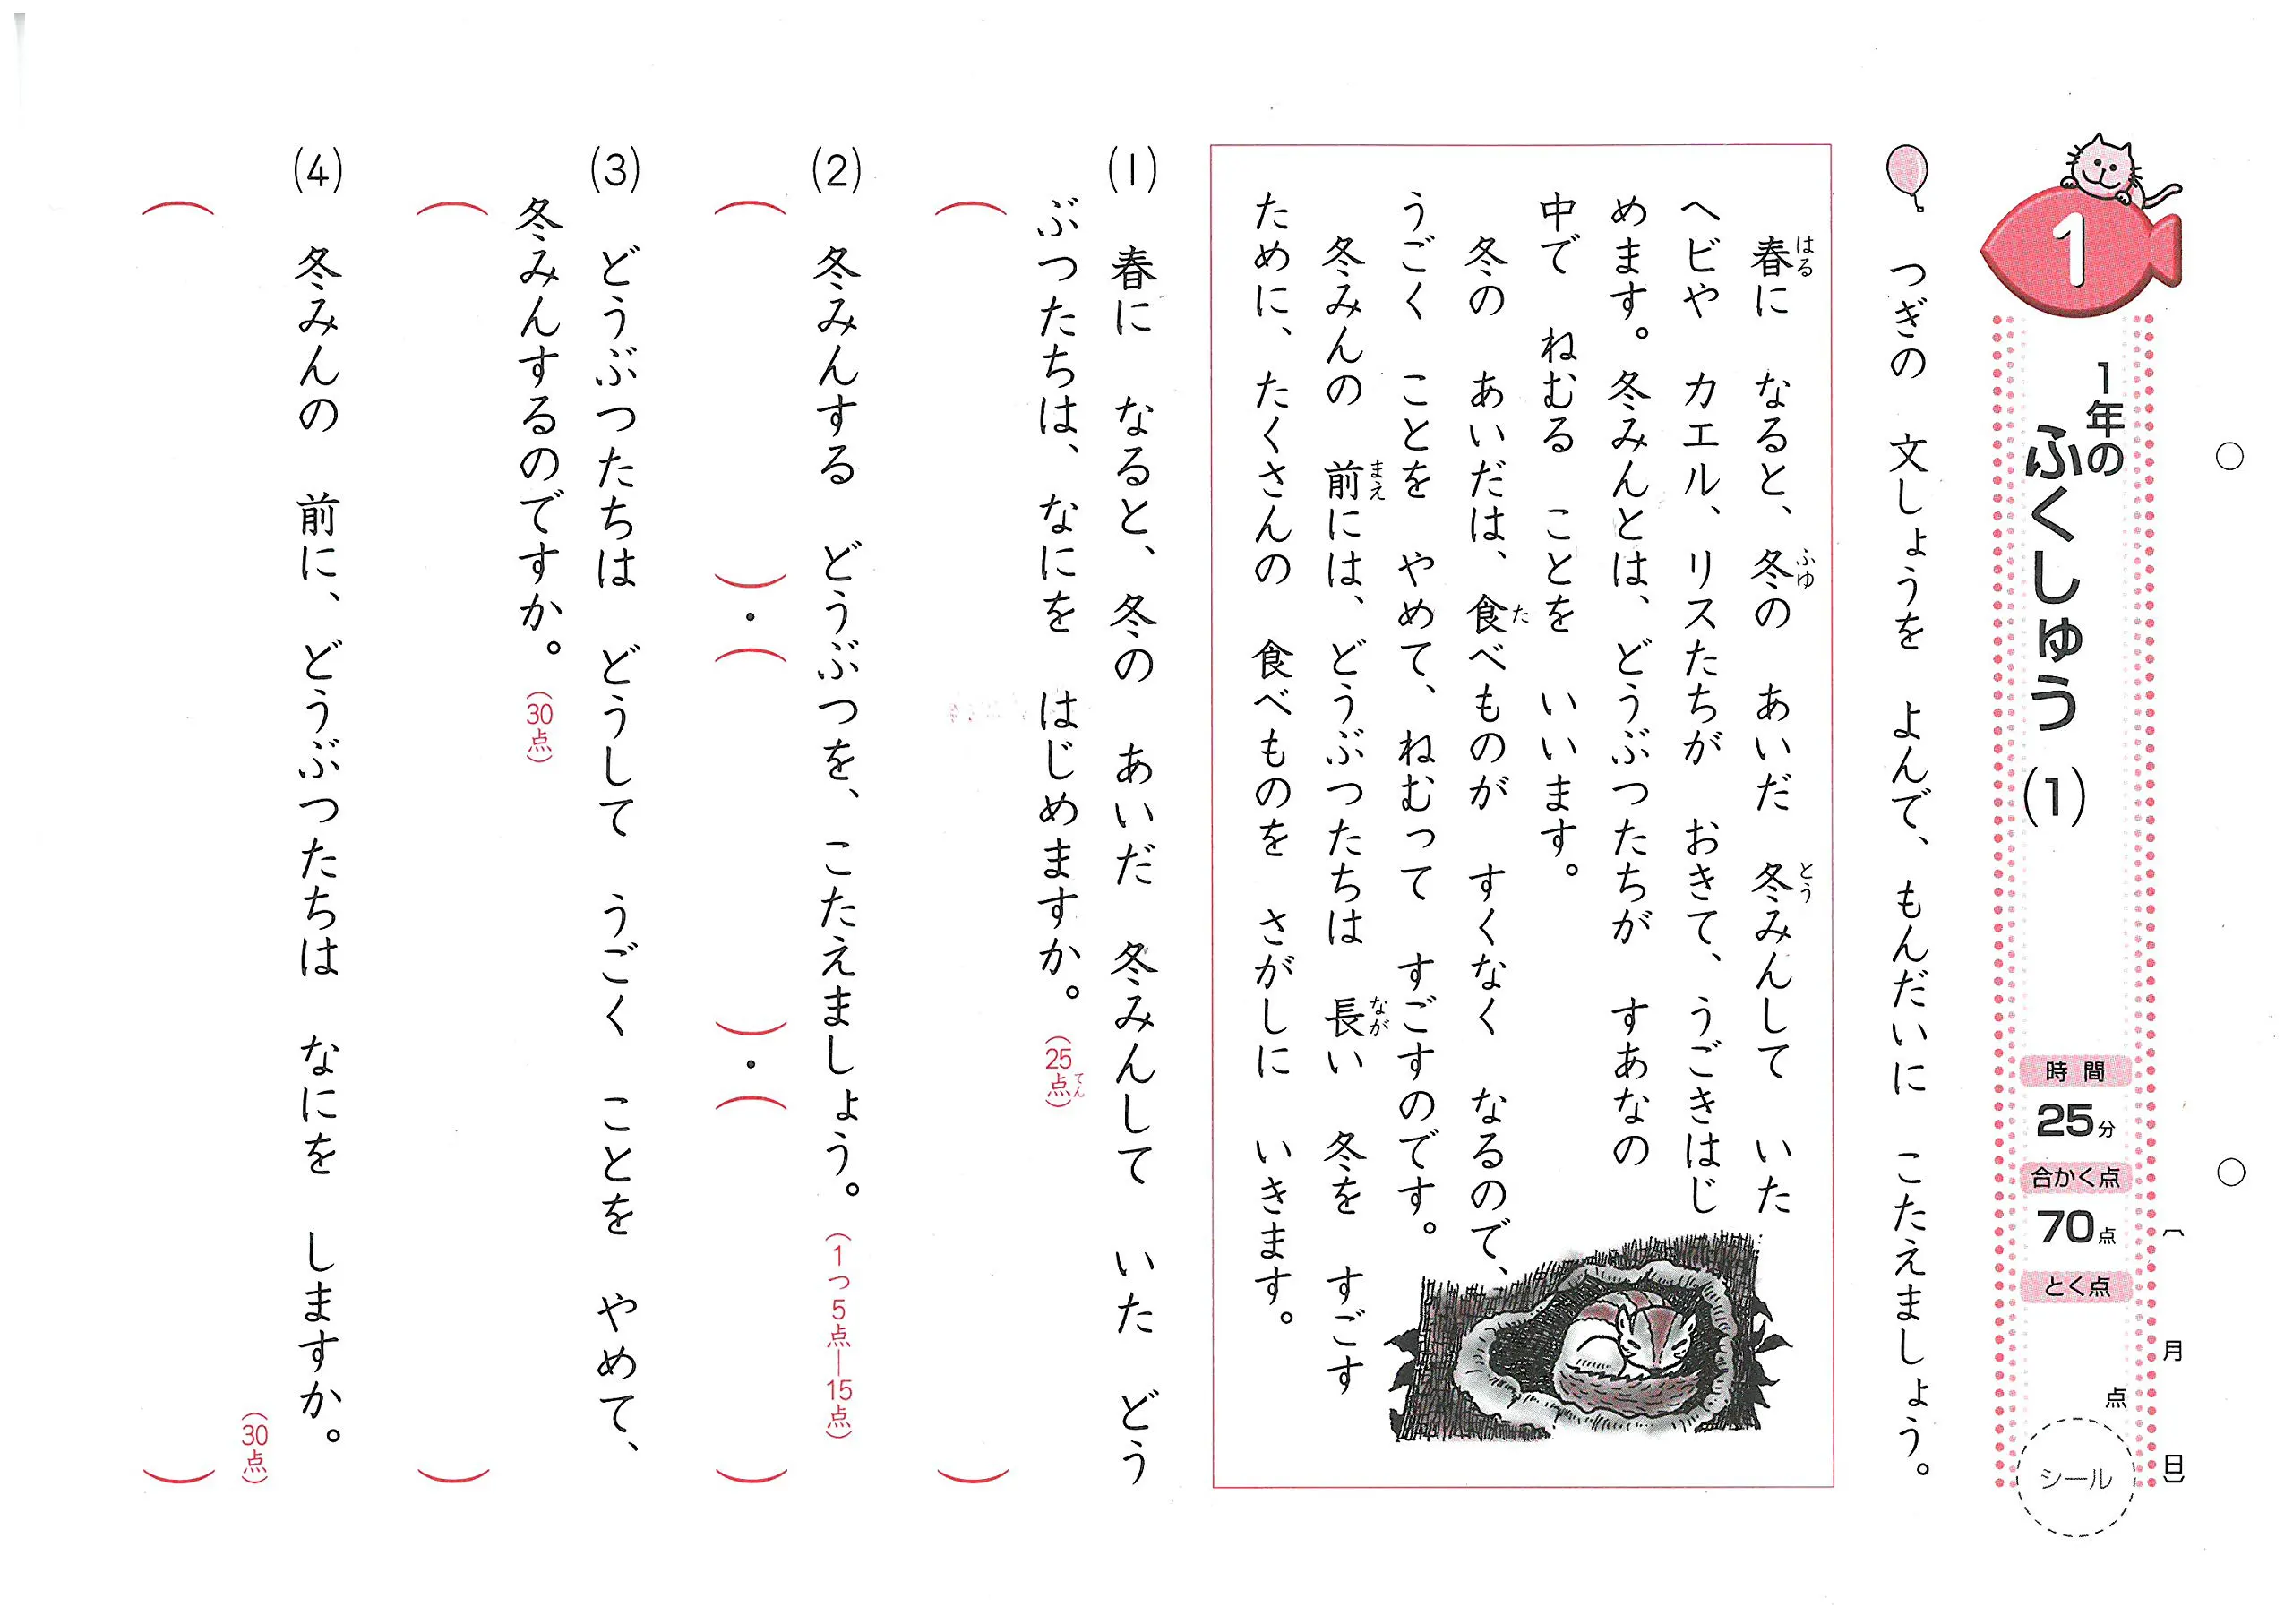 1
1年の
ふくしゅう(1)
時間
25分
合かく点
70点
とく点
点
シール
〔 月 日〕
つぎの 文しょうを よんで、もんだいに こたえましょう。
春に なると、冬の あいだ 冬みんして いた
はる ふゆ とう
ヘビや カエル、リスたちが おきて、うごきはじ
めます。冬みんとは、どうぶつたちが すあなの
中で ねむる ことを いいます。
冬の あいだは、食べものが すくなく なるので、
た
うごく ことを やめて、ねむって すごすのです。
冬みんの 前には、どうぶつたちは 長い 冬を すごす
まえ なが
ために、たくさんの 食べものを さがしに いきます。
(1) 春に なると、冬の あいだ 冬みんして いた どう
ぶつたちは、なにを はじめますか。(25点)
てん
( )
(2) 冬みんする どうぶつを、こたえましょう。(1つ5点―15点)
( )・( )・( )
(3) どうぶつたちは どうして うごく ことを やめて、
冬みんするのですか。(30点)
( )
(4) 冬みんの 前に、どうぶつたちは なにを しますか。
(30点)
( )